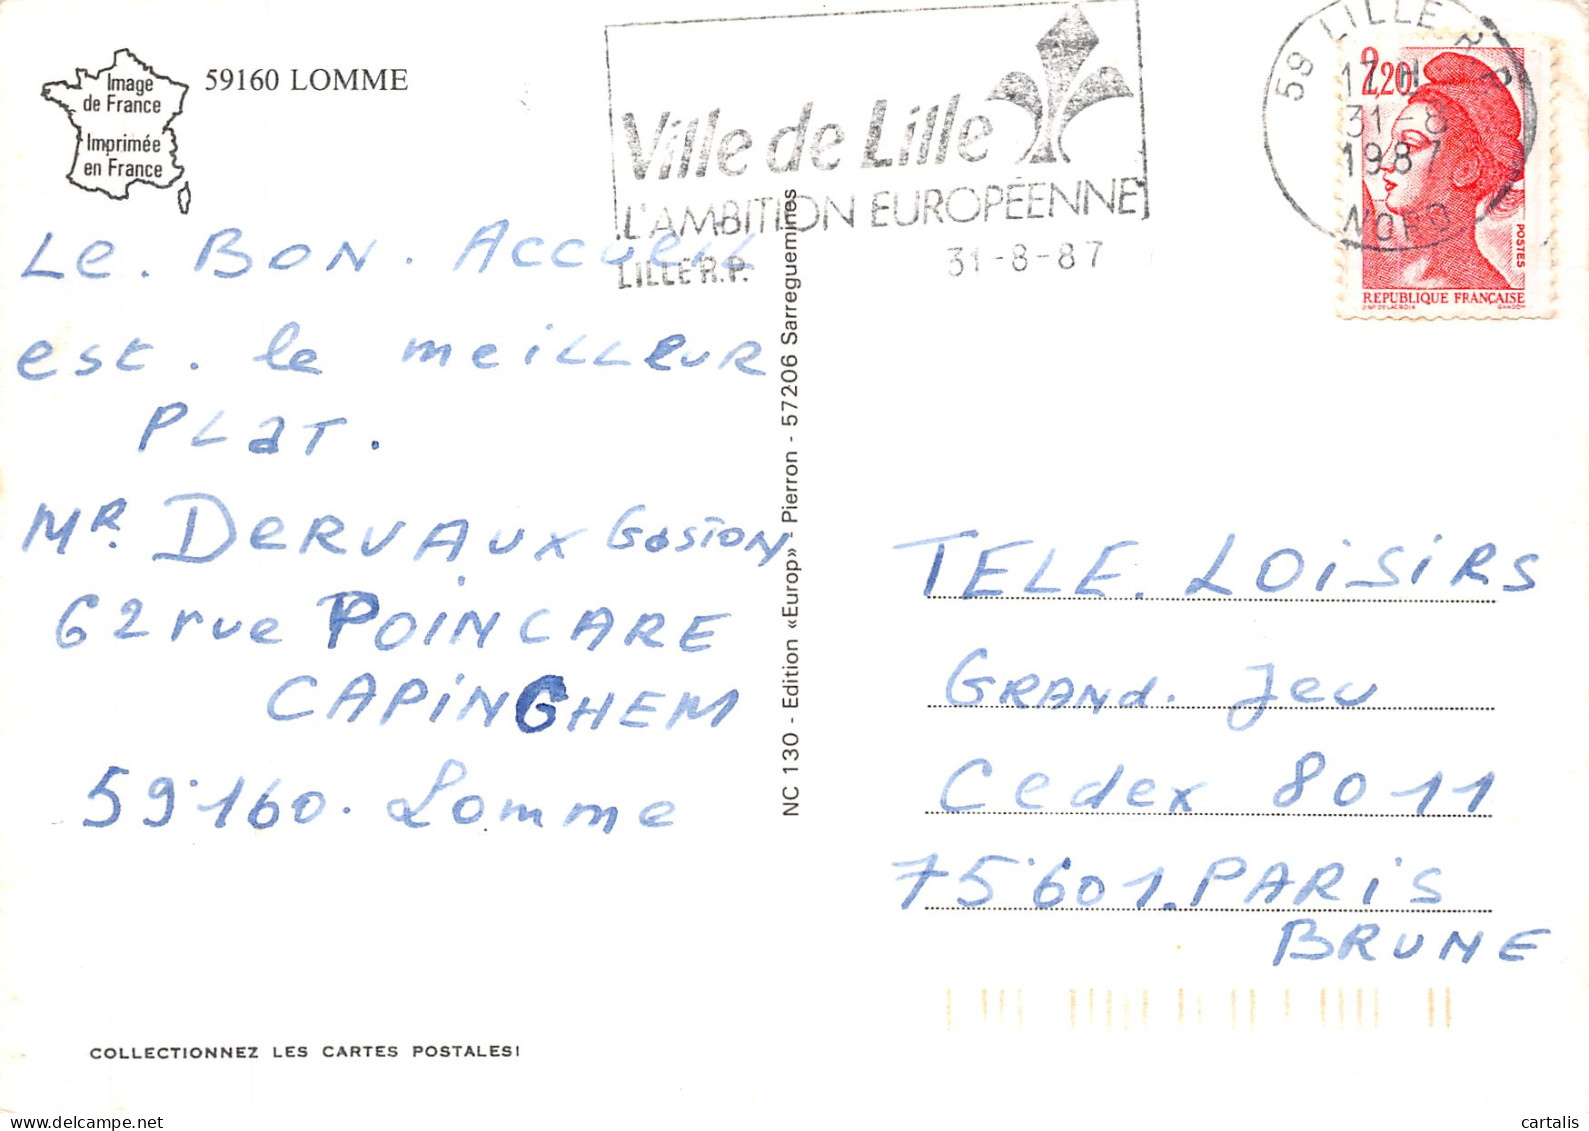 Image
de France
Imprimée
en France
59160 LOMME
Ville de Lille
L'AMBITION EUROPÉENNE
LILLE R.P.
31-8-87
59 LILLE R.P.
17H
31-8
1987
NORD
2,20
POSTES
REPUBLIQUE FRANÇAISE
D'AP. DELACROIX
GANDON
Le. BON. Accueil
est. le meilleur
PLaT.
MR. DERVAUX Gaston
62 rue POINCARE
CAPiNGHEM
59.160. Lomme
NC 130 - Edition «Europ» - Pierron - 57206 Sarreguemines
TELE. LOiSiRS
GRANd. Jeu
Cedex 8011
75.601. PARiS
BRUNE
COLLECTIONNEZ LES CARTES POSTALES!
cartalis